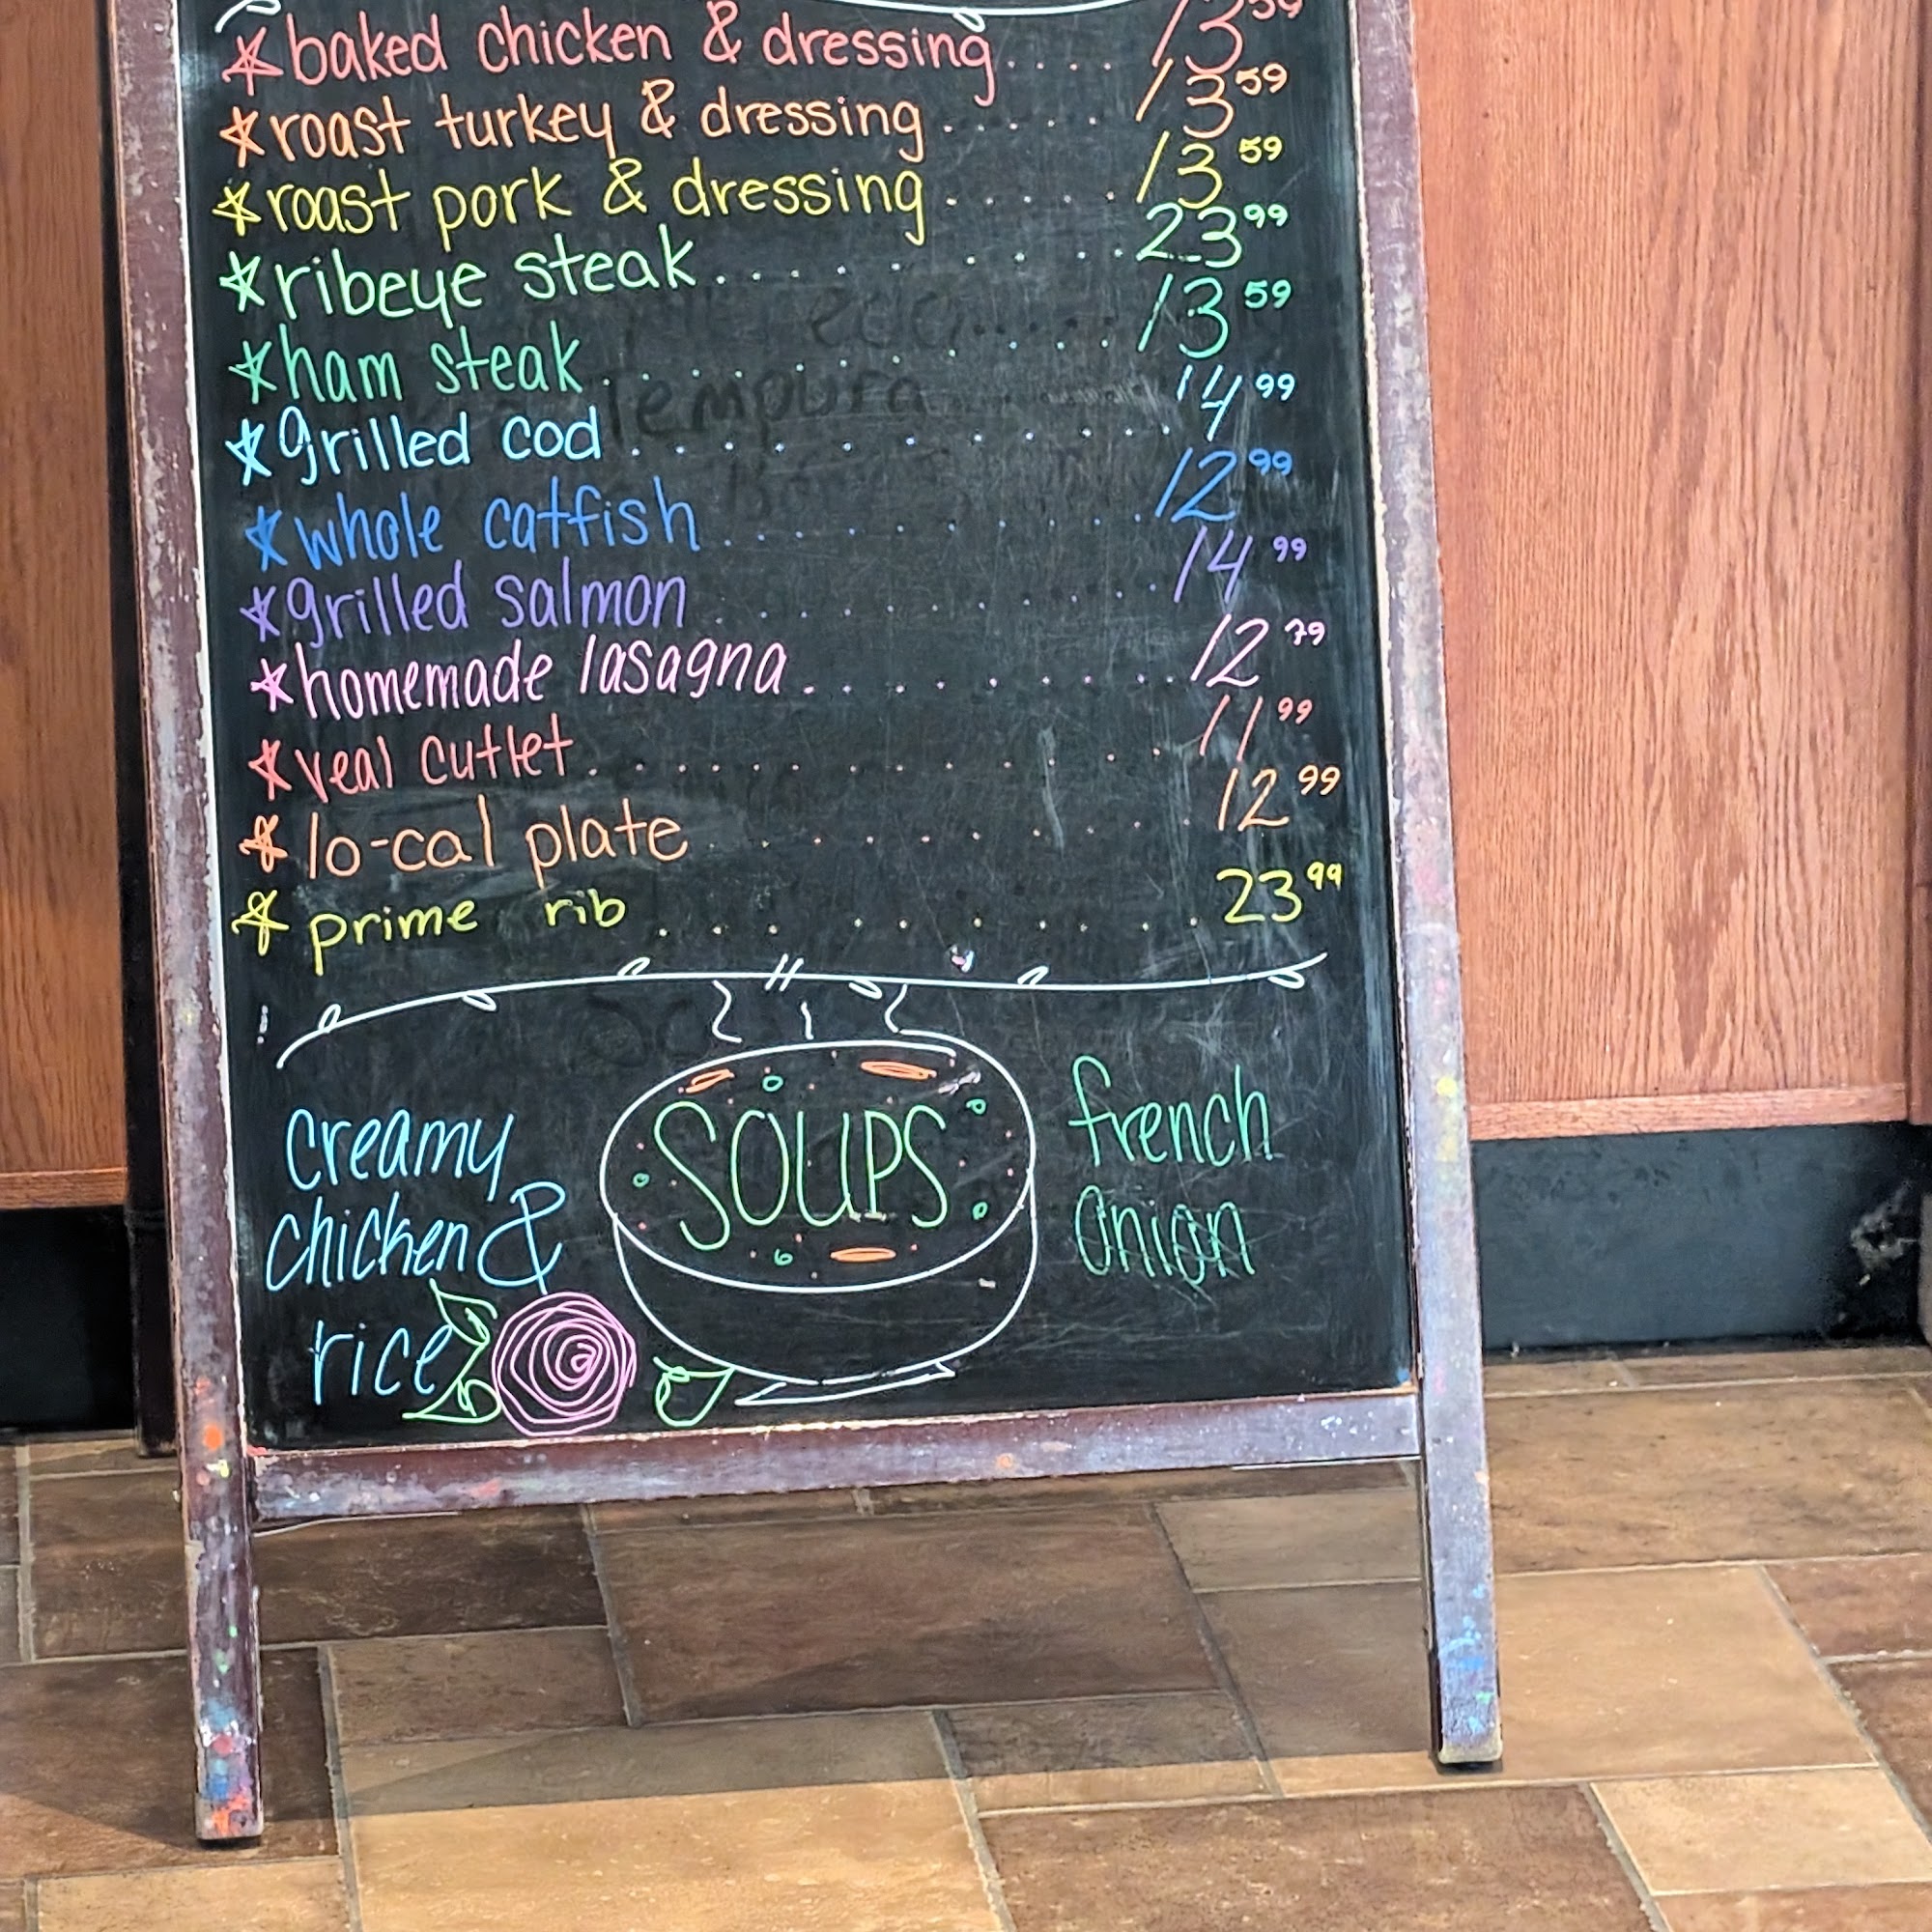 *baked chicken & dressing.... 13 59
*roast turkey & dressing...... 13 59
*roast pork & dressing..... 13 59
*ribeye steak.......... 23 99
*ham steak.......... 13 59
*grilled cod.......... 14 99
*whole catfish.......... 12 99
*grilled salmon.......... 14 99
*homemade lasagna......... 12 79
*veal cutlet.......... 11 99
*lo-cal plate.......... 12 99
*prime rib......... 23 99
SOUPS
creamy
chicken &
rice
french
onion
Tempura